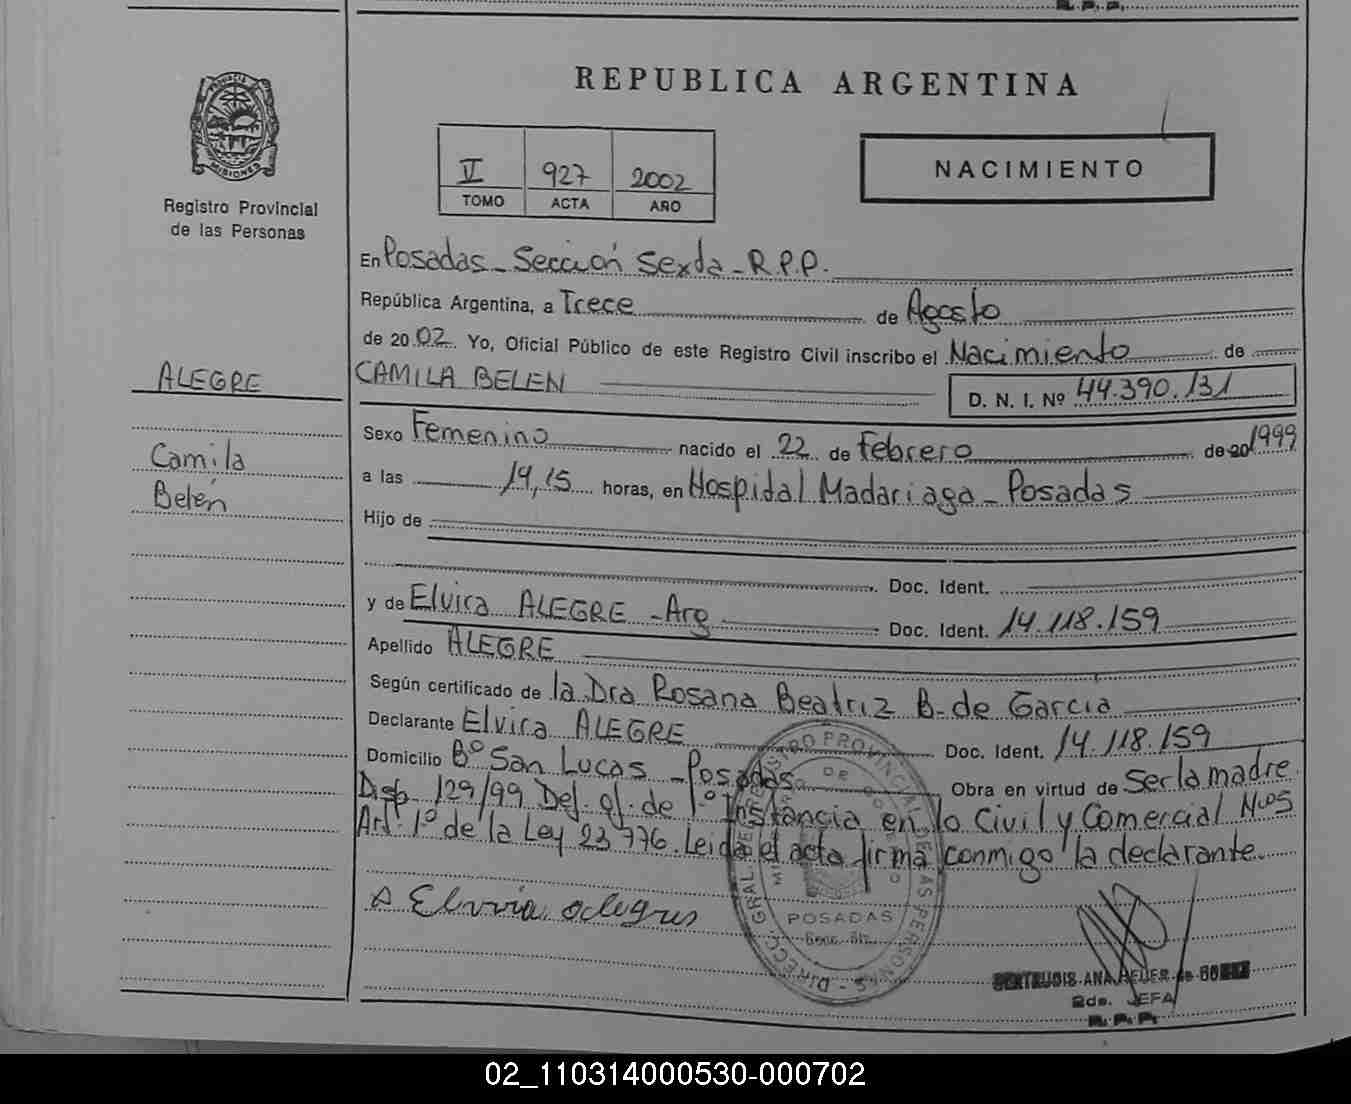 R. P. P.
PROVINCIA
MISIONES
Registro Provincial
de las Personas
ALEGRE
Camila
Belén
REPUBLICA ARGENTINA
VI 927 2002
TOMO ACTA AÑO
NACIMIENTO
En Posadas - Sección Sexta - R.P.P.
República Argentina, a Trece de Agosto
de 20 02 Yo, Oficial Público de este Registro Civil inscribo el Nacimiento de
CAMILA BELEN D. N. I. Nº 44.390.131
Sexo Femenino nacido el 22 de Febrero de 20 1999
a las 14,15 horas, en Hospital Madariaga - Posadas
Hijo de
Doc. Ident.
y de Elvira ALEGRE - Arg Doc. Ident. 14.118.159
Apellido ALEGRE
Según certificado de la Dra Rosana Beatriz B. de Garcia
Declarante Elvira ALEGRE Doc. Ident. 14.118.159
Domicilio Bº San Lucas - Posadas Obra en virtud de Ser la madre
Disp 129/99 Def. of. de 1º Instancia en lo Civil y Comercial Nº 5
Art. 1º de la Ley 23776. Leida el acta firma conmigo la declarante.
POSADAS
2da. JEFA
R. P. P.
02_110314000530-000702